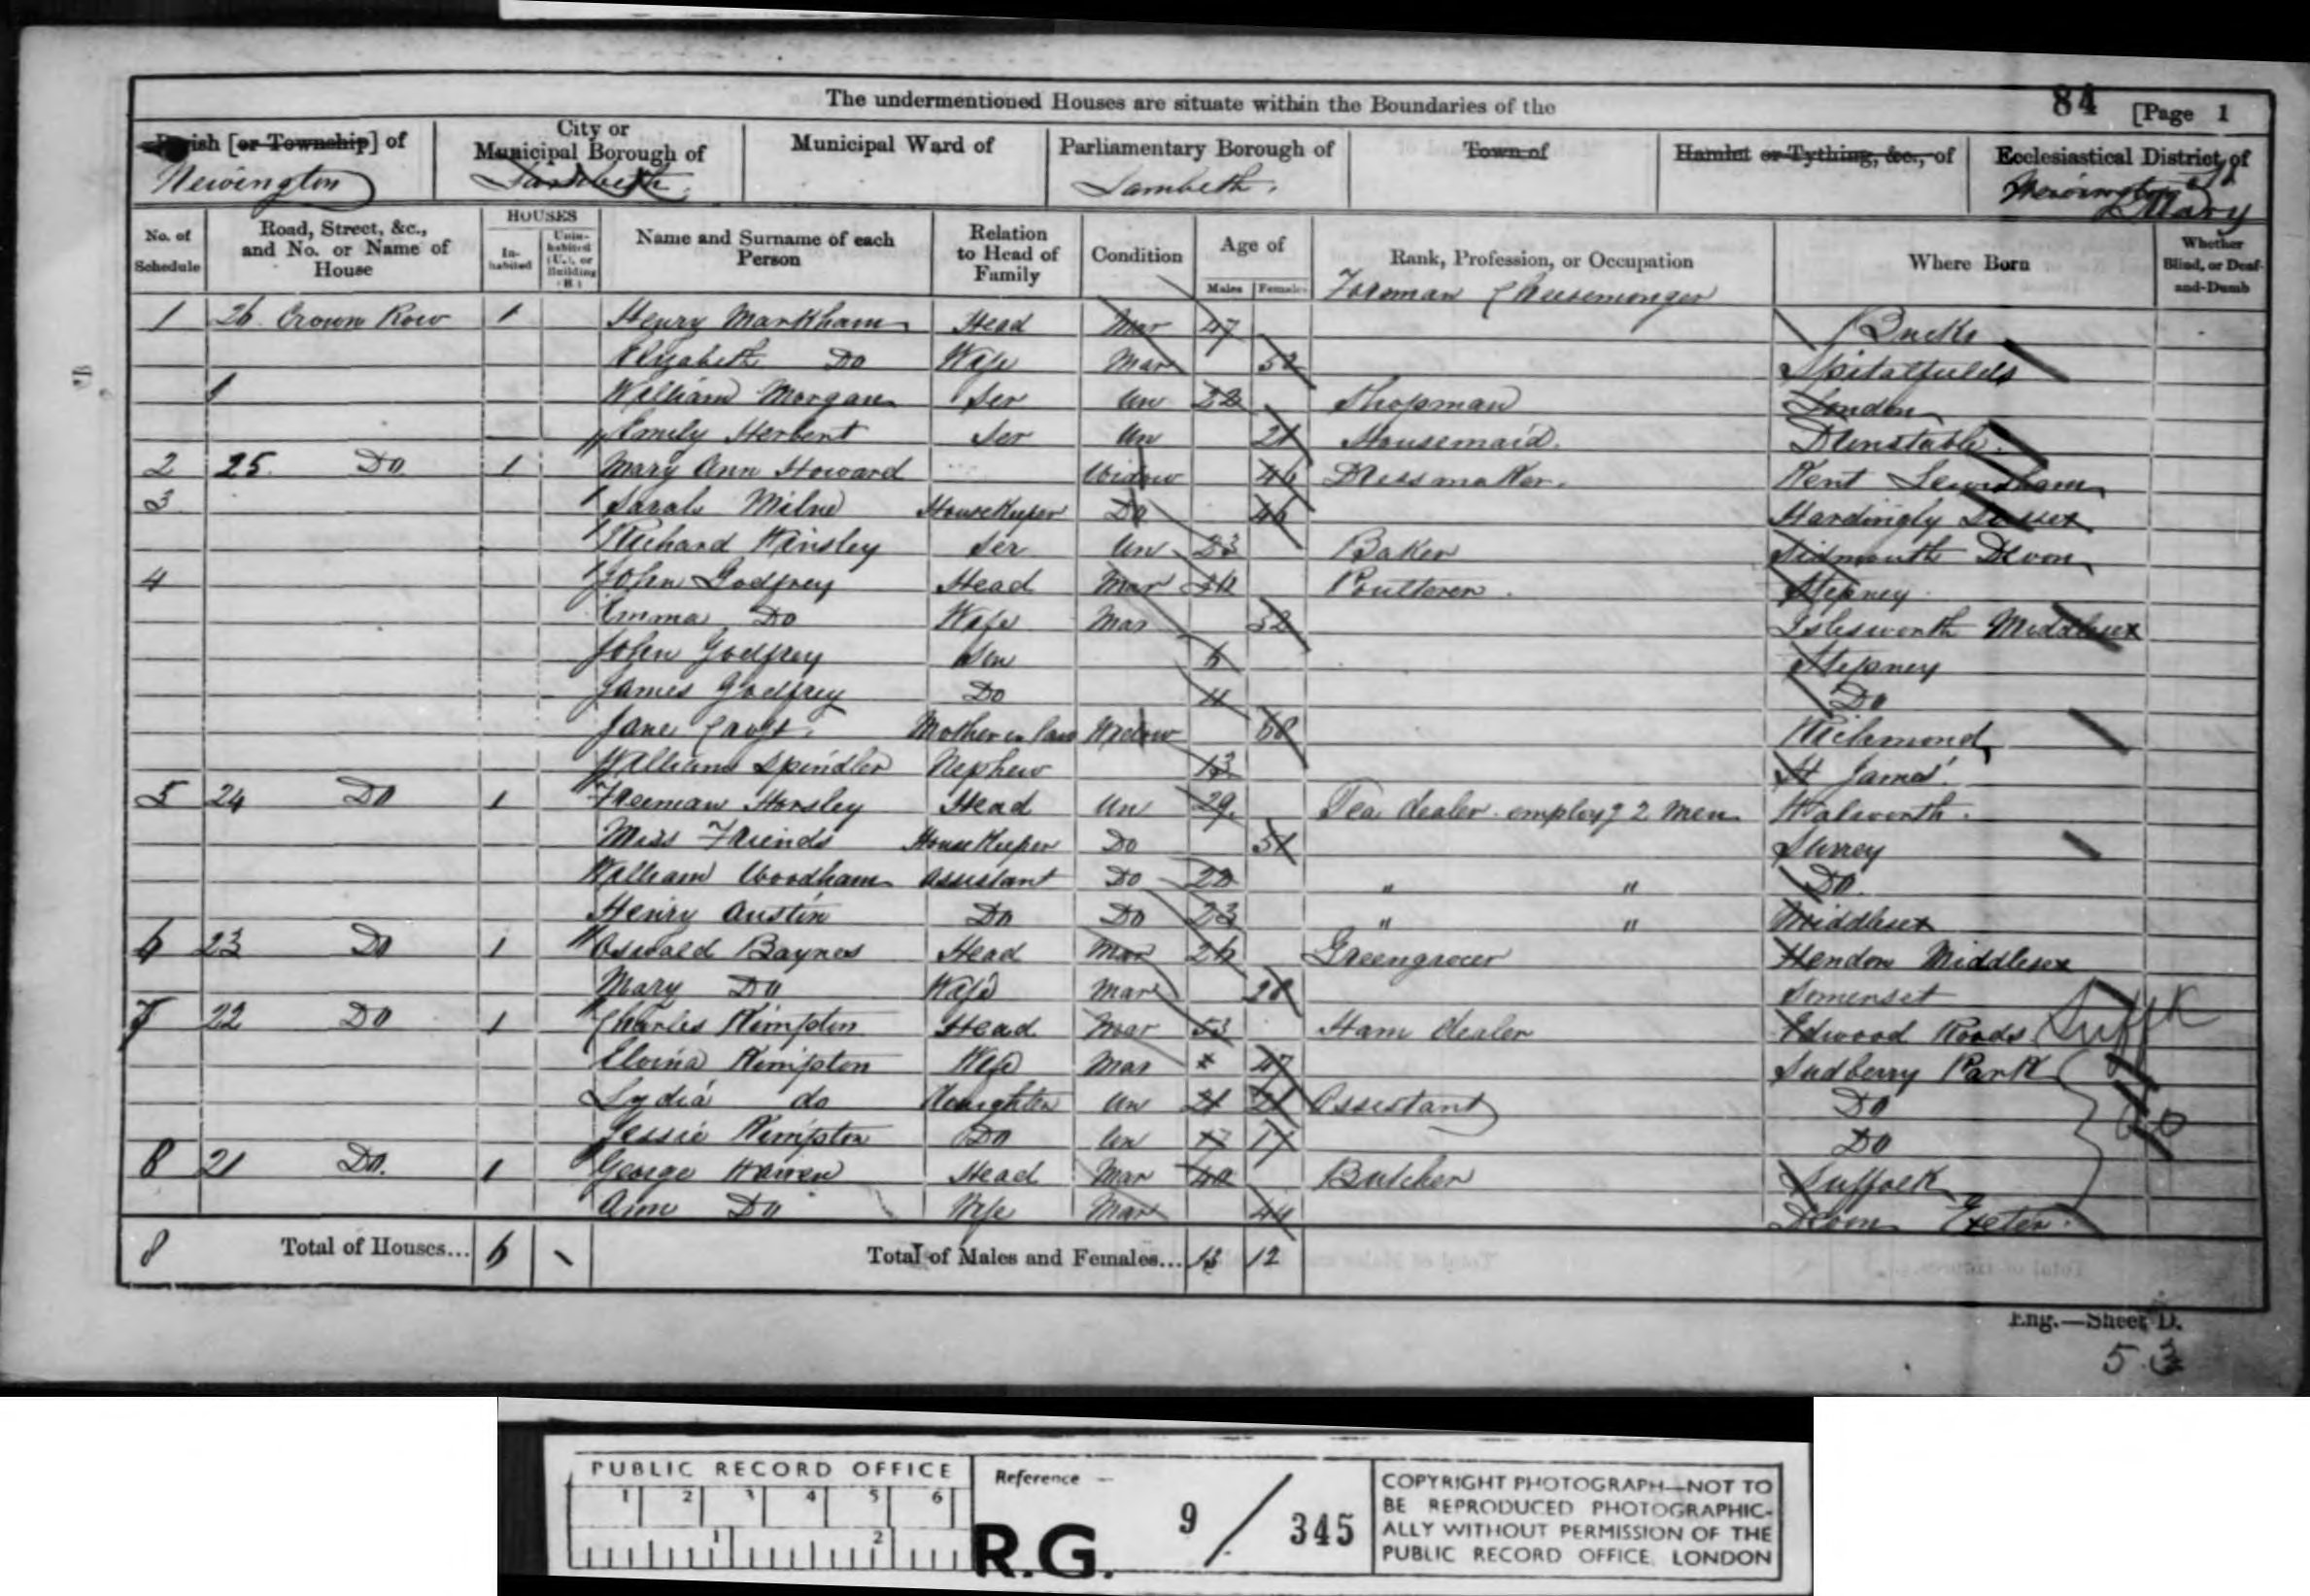 The undermentioned Houses are situate within the Boundaries of the
84 [Page 1
Parish [or Township] of
Newington
City or Municipal Borough of
Lambeth
Municipal Ward of
Parliamentary Borough of
Lambeth.
Town of
Hamlet or Tything, &c., of
Ecclesiastical District of
St Mary
No. of Schedule
Road, Street, &c., and No. or Name of House
HOUSES
In-habited
Unin-habited (U.), or Building (B.)
Name and Surname of each Person
Relation to Head of Family
Condition
Age of
Males Females
Rank, Profession, or Occupation
Where Born
Whether Blind, or Deaf-and-Dumb
1 26 Crown Row 1 Henry Markham Head Mar 47 Foreman Cheesemonger Bucks
Elizabeth Do Wife Mar 52 Spitalfields
William Morgan Ser Un 22 Shopman London
Emily Herbert Ser Un 21 Housemaid. Dunstable.
2 25 Do 1 Mary Ann Howard Widow 46 Dressmaker. Kent Lewisham
3 Sarah Milne HouseKeeper Do 46 Hardingly Sussex
Richard Winsley Ser Un 23 Baker Sidmouth Devon
4 John Godfrey Head Mar Poulterer. Stepney
Emma Do Wife Mar 32 Islesworth Middlesex
John Godfrey Son 6 Stepney
James Godfrey Do 4 Do
Jane Mother in law Widow Richmond
William Spindler Nephew 13 St James'
5 24 Do 1 Freeman Horsley Head Un 29 Tea dealer employg 2 men Walworth.
Miss Friends HouseKeeper Do 51 Surrey
William Woodham Assistant Do 22 " " Do
Henry Austin Do Do 23 " " Middlesex
6 23 Do 1 Oswald Baynes Head Mar 26 Greengrocer Hendon Middlesex
Mary Do Wife Mar 28 Somerset
7 22 Do 1 Charles Kimpton Head Mar 53 Ham dealer Edwood Roads Suffk
Elvina Kimpton Wife Mar 47 Sudberry Park
Lydia do Daughter Un 21 21 Assistant Do Do
Jessie Kimpton Do Un 17 17 Do
8 21 Do. 1 George Warren Head Mar 40 Butcher Suffolk
Ann Do Wife Mar 44 Devon Exeter.
8 Total of Houses... 6 Total of Males and Females... 13 12
Eng.—Sheet D.
5.
PUBLIC RECORD OFFICE
1 2 3 4 5 6
1 2
Reference —
R.G. 9 / 345
COPYRIGHT PHOTOGRAPH—NOT TO
BE REPRODUCED PHOTOGRAPHIC-
ALLY WITHOUT PERMISSION OF THE
PUBLIC RECORD OFFICE, LONDON